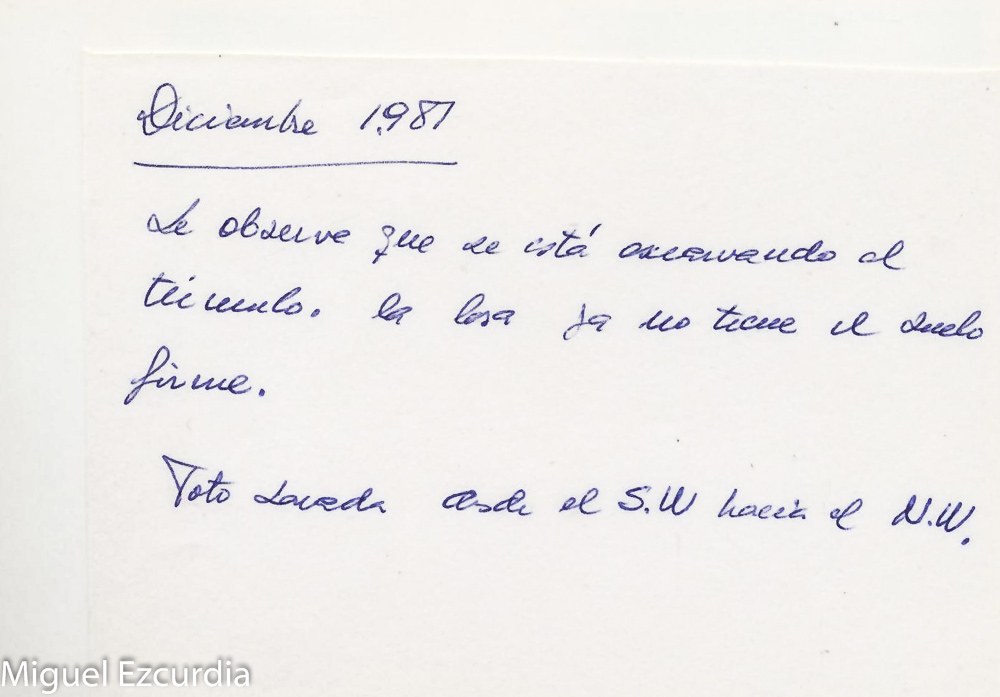 Diciembre 1.981
Se observa que se está excavando el
túmulo. la losa ya no tiene el suelo
firme.
Foto sacada desde el S.W hacia el N.W.
Miguel Ezcurdia